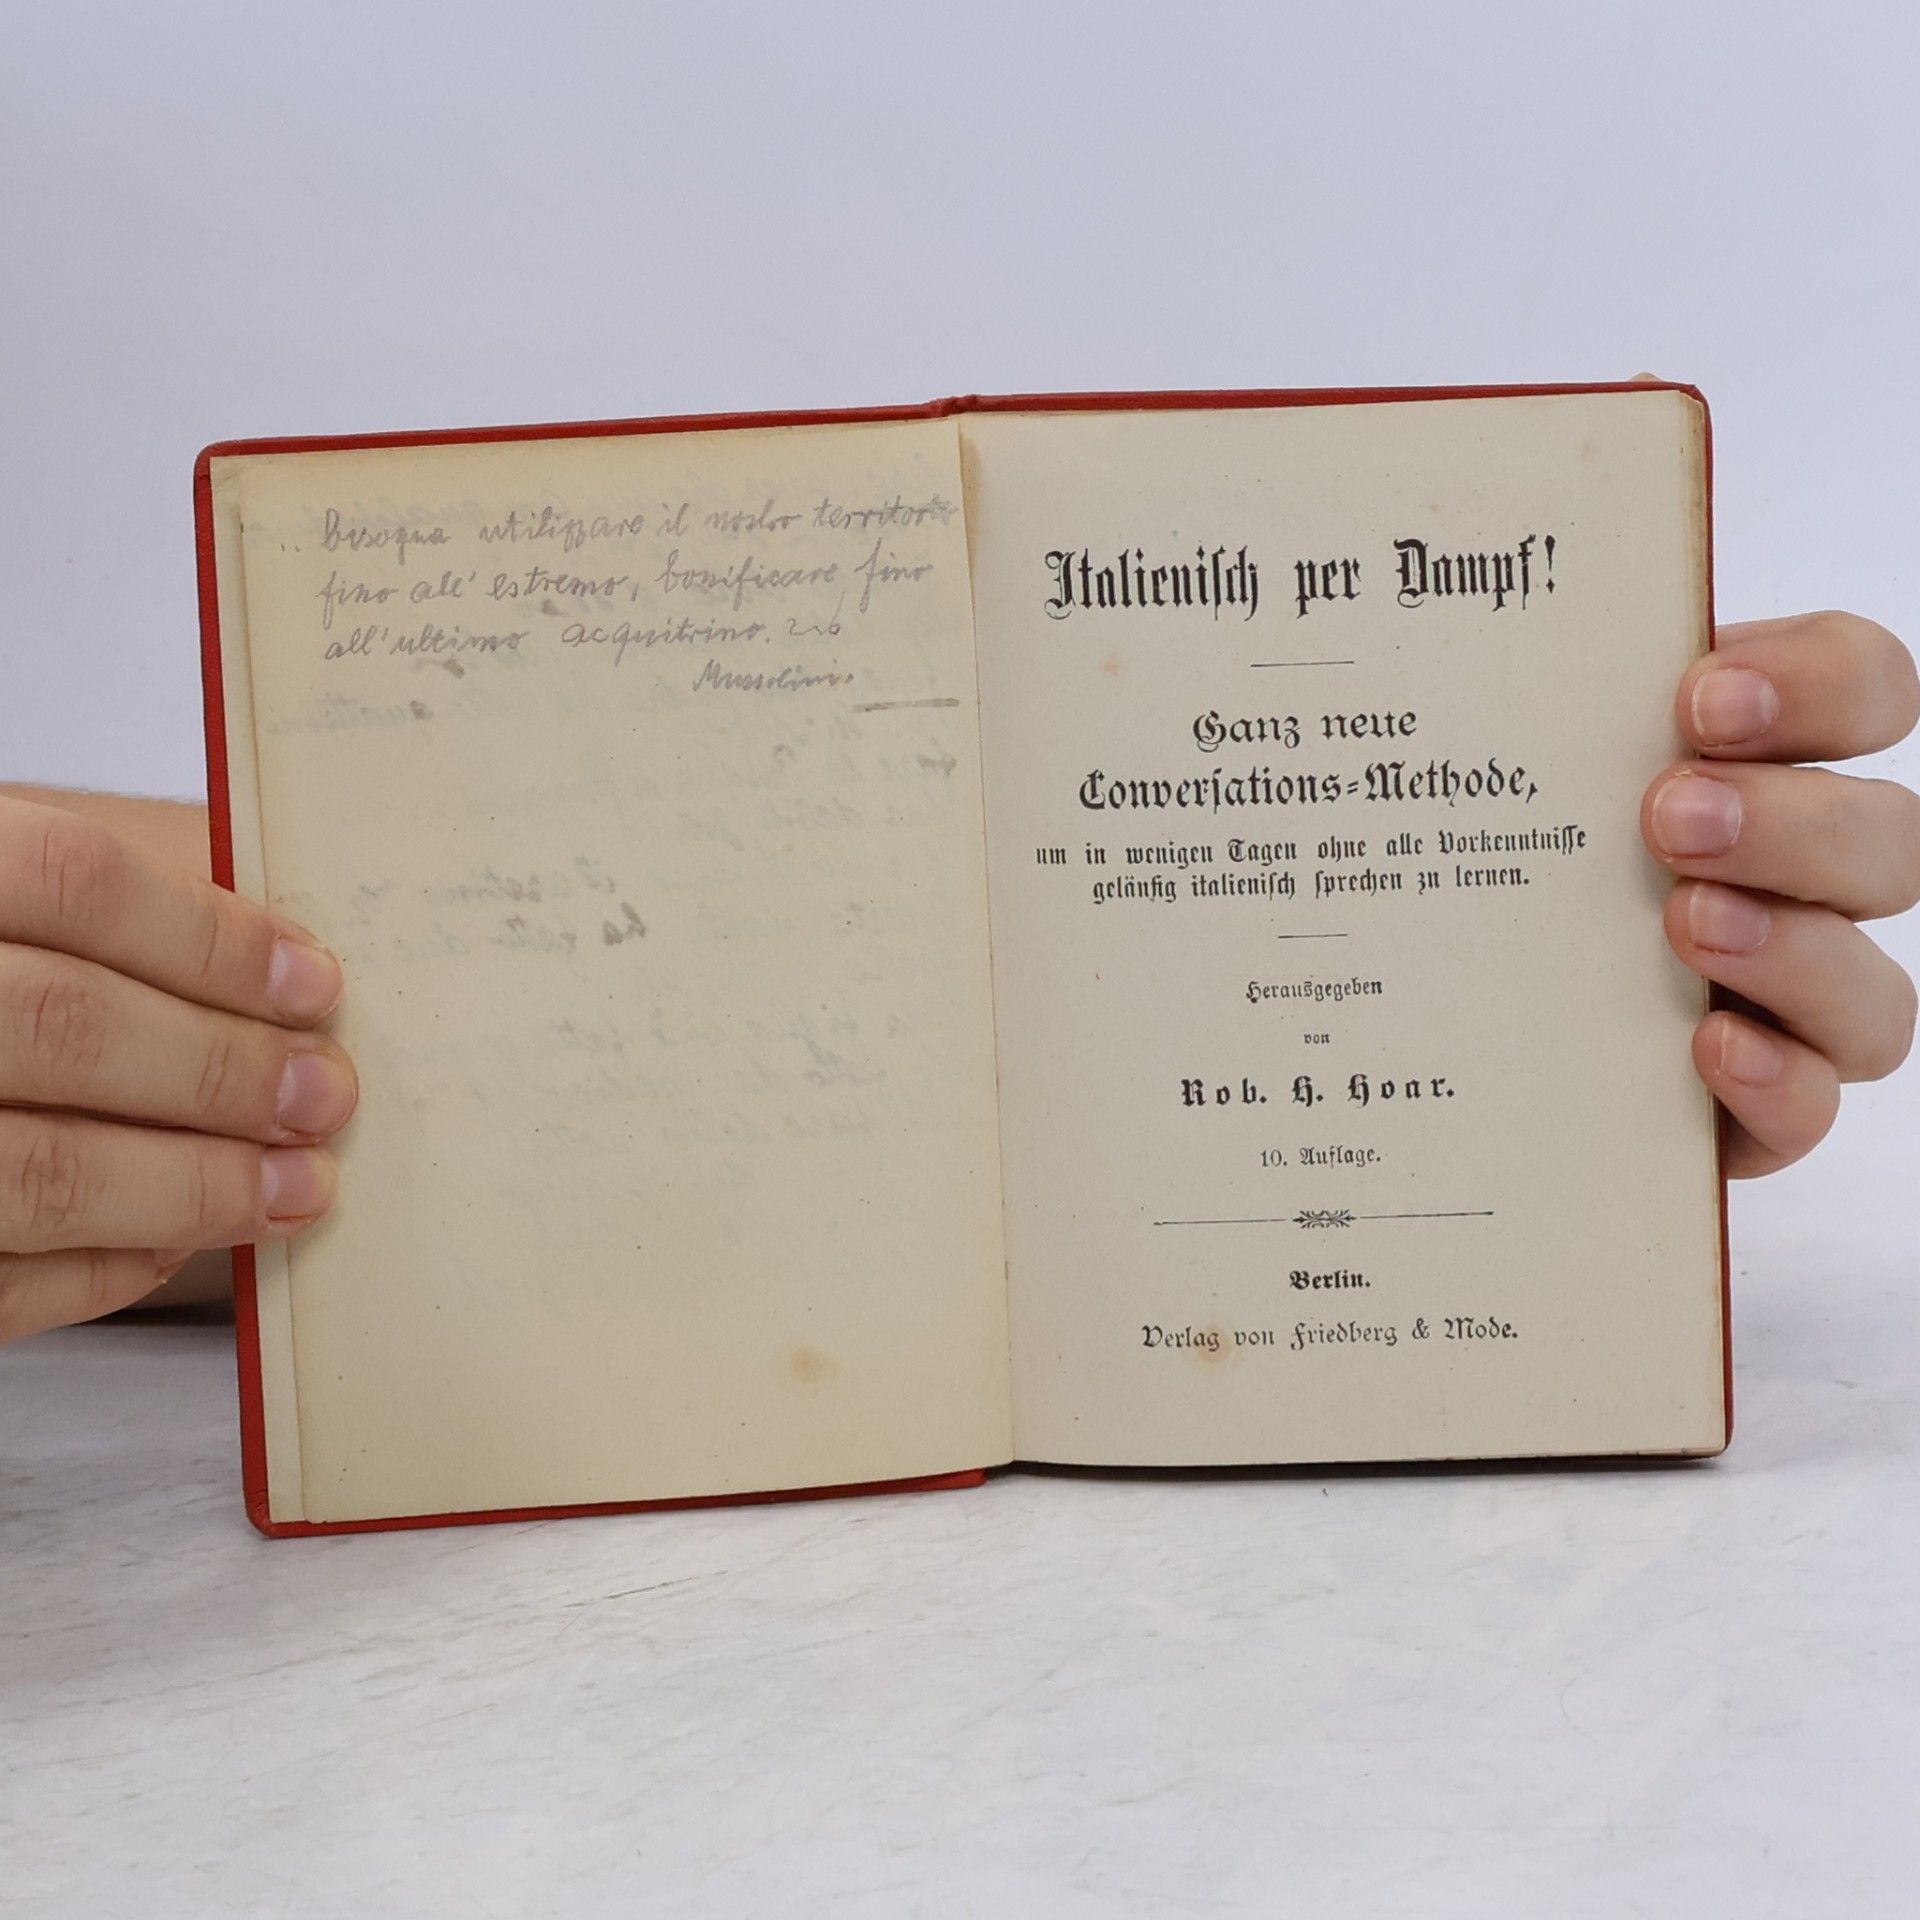 .. bisogna utilizzare il nostro territorio
fino all' estremo, bonificare fino
all'ultimo acquitrino.
Mussolini.
Italieniſch per Dampf!
Ganz neue
Converſations-Methode,
um in wenigen Tagen ohne alle Vorkenntniſſe
geläufig italieniſch ſprechen zu lernen.
Herausgegeben
von
Rob. H. Hoar.
10. Auflage.
Berlin.
Verlag von Friedberg & Mode.